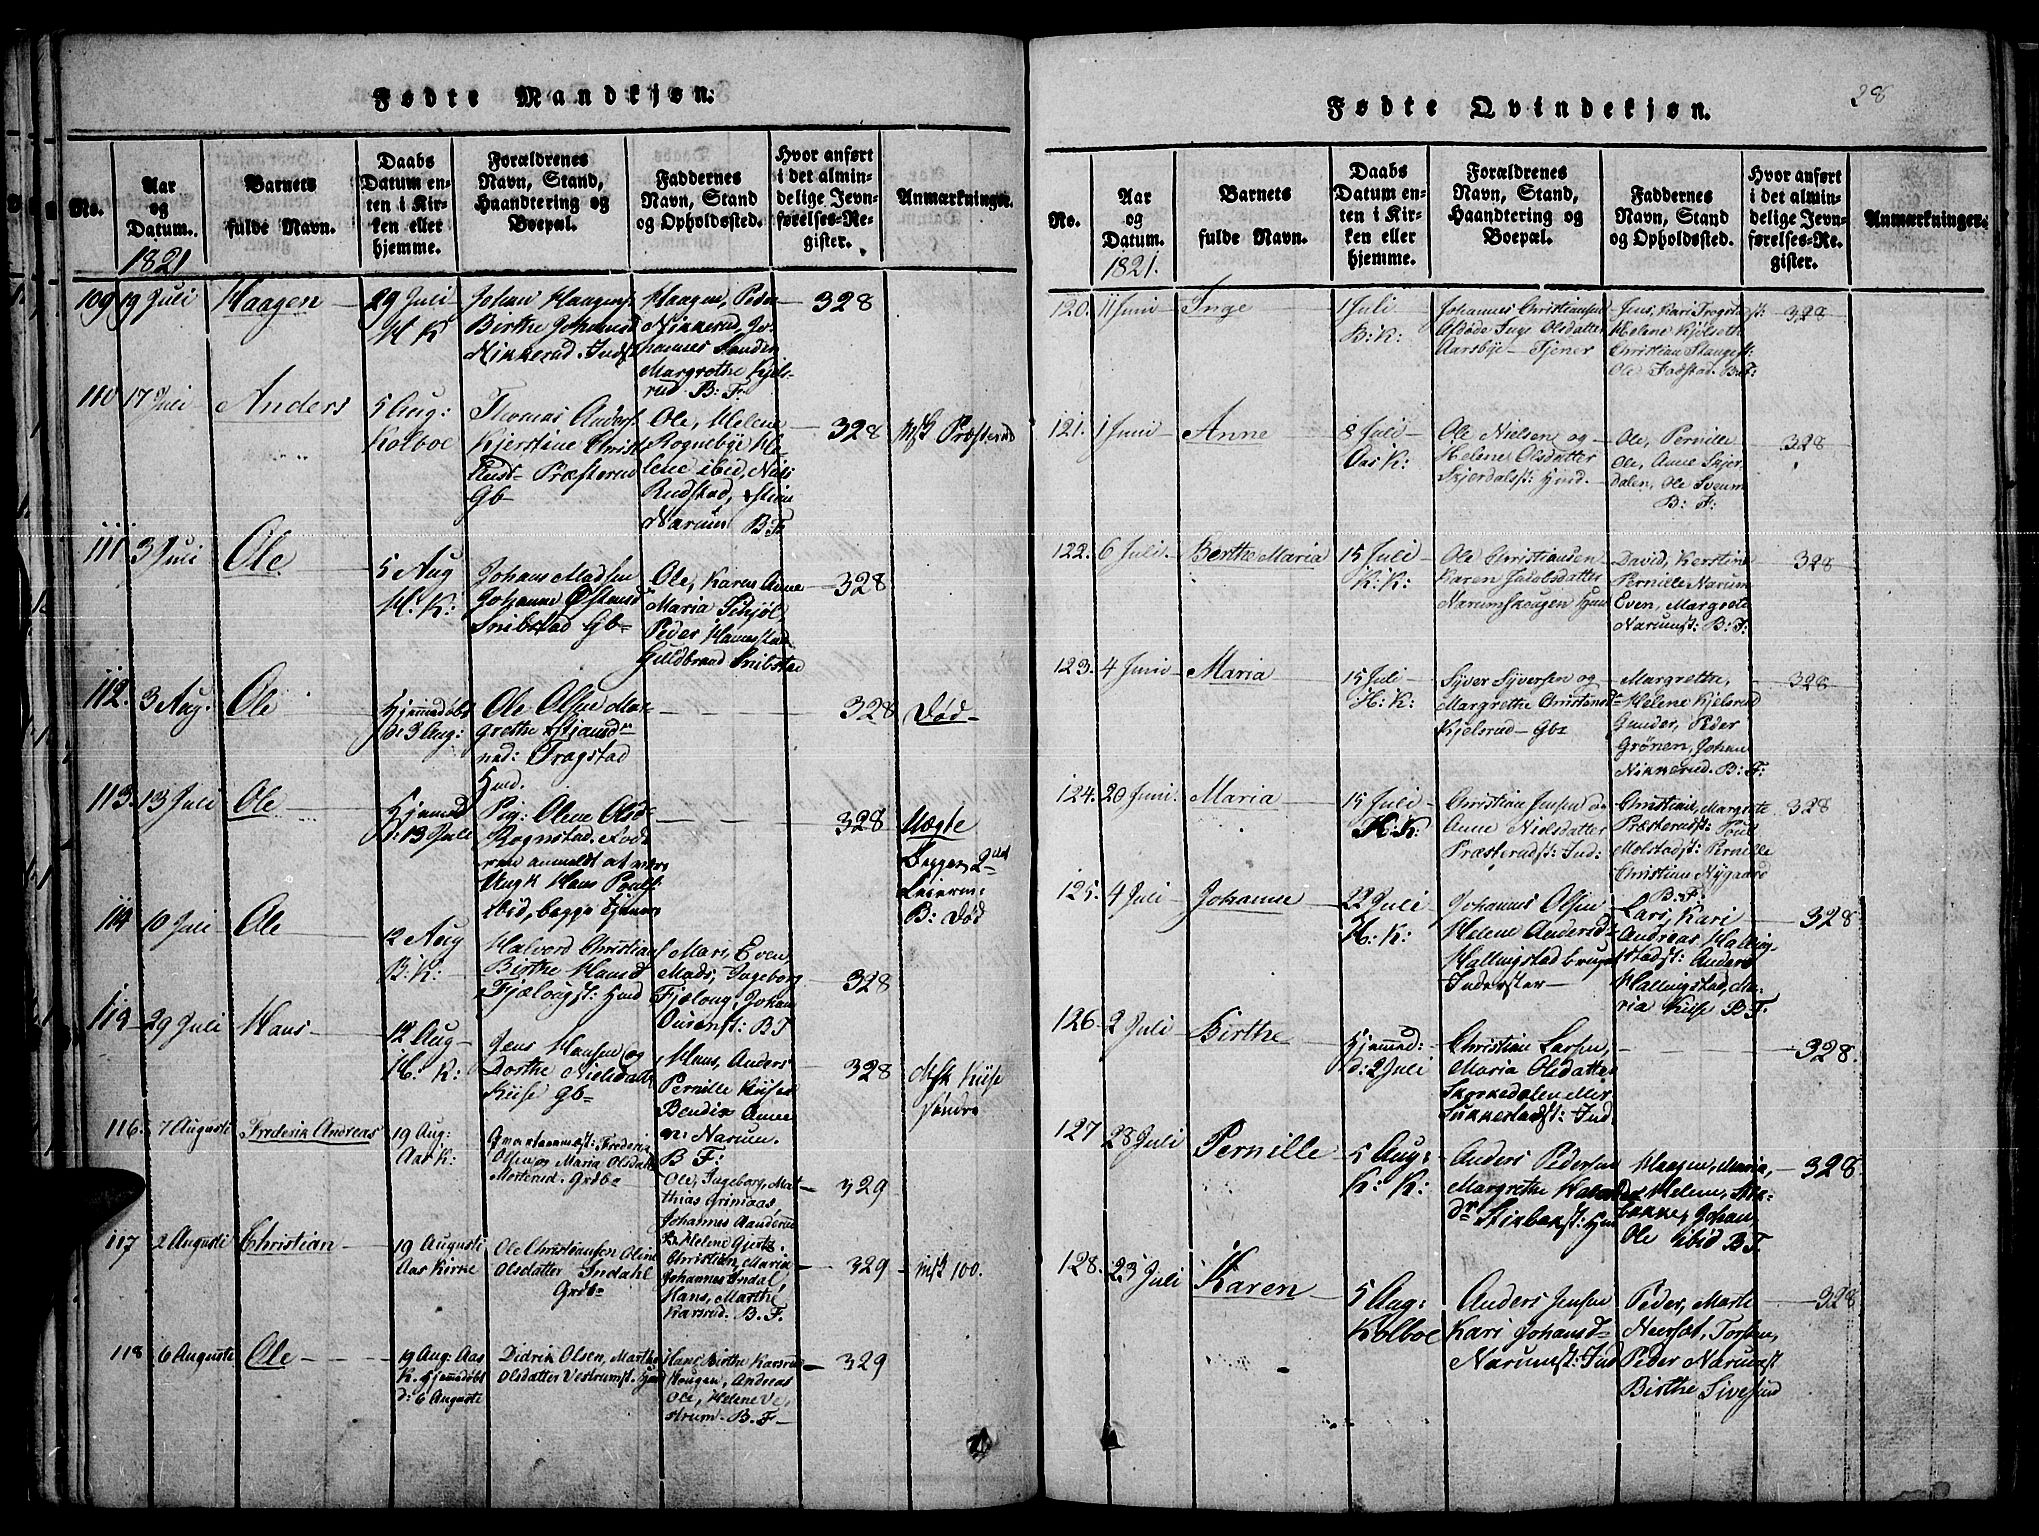 Fødte Mandkjøn.
No.
Aar
og
Datum.
1821
Barnets
fulde Navn.
Daabs
Datum en-
ten i Kir-
ken eller
hjemme.
Forældrenes
Navn, Stand,
Haandtering og
Boepæl.
Faddernes
Navn, Stand
og Opholdssted.
Hvor anført
i det almin-
delige Jevn-
førelses-Re-
gister.
Anmærkninger.
109 19 Juli Haagen 29 Juli
H K
Johan Haagens
Birthe Johannsd
Nikkerud. Inds
Haagen, Peder
Nikkerud, Jo-
hannes Sanden
Margrethe Kjels-
rud. B: F:
328
110 17 Juli Anders 5 Aug:
Kolboe
Thomas Anders
Kjerstine Christ
Præsterud
Gb
Ole, Helene
Rognebye
lene ibid, Niels
Rudstad, Stine
Narum B.F.
328
Msk Præsterud
111 3 Juli Ole 5 Aug
H: K:
Johans Madsen
Johanne Østensd
Snibstad Gb
Ole, Karen Anne
Maria Schjøl
Peder Hammestad
Guldbrand Snibstad
328
112. 3 Aug. Ole Hjemmedøbt
d: 3 Aug:
Ole Olsen Mar-
grethe
Trogstad
Hmd.
328
Død
113. 13 Juli Ole Hjemmed
d: 13 Juli
Pig: Olene Olsd
Rognstad. Fade-
ren anmeldt at være
Ungk Hans Pouls:
ibid, begge Tjenere
328
Uægte
Begges 2det
Leierm:
B: Død
114 10 Juli Ole 12 Aug
B: K:
Halvord Christian
Birthe Hansd
Fjælougst: Hmd
Mari, Even,
Mads, Ingeborg
Fjeloug, Johan
Ousenst: B F
328
114 29 Juli Hans 12 Aug
H: K:
Jens Hansen og
Dorthe Nielsdatte
Kiise Gb
Hans, Anders
Pernille Kiise
Bendix Anne
Narum.
B F:
328
Msk Kiise
søndre
116. 7 Augusti Frederik Andreas 19 Aug:
Aas K:
Qvartermest: Frederik
Olsen og Maria Olsdatt
Mosterud. Grdb
Ole, Ingeborg, Mat
thias Grimaas
Johannes Aanderud
Helene Gjerts.
329
117 2 Augusti Christian 19 Augusti
Aas Kirke
Ole Christiansen Oline
Olsdatter Indahl
Grdb
Christian, Maria
Johannes Indal,
Hans, Marthe
Karsrud. B. F.
329
msk 100.
118 6 Auguste Ole 19 Aug: Aas
K. Hjemmedøbt
d: 6 Auguste
Didrik Olsen, Marthe
Olsdatter Vestrumst. Hmd
Hans, Birthe Karsrud
Haugen, Andreas
Ole, Helene Ve-
strum. B. F
329
Fødte Qvindekjøn.
28
No.
Aar
og
Datum.
1821.
Barnets
fulde Navn.
Daabs
Datum en-
ten i Kir-
ken eller
hjemme.
Forældrenes
Navn, Stand,
Haandtering og
Boepæl.
Faddernes
Navn, Stand
og Opholdssted.
Hvor anført
i det almin-
delige Jevn-
førelses-Re-
gister.
Anmærkninger.
120. 11 Juni Inge 1 Juli
B: K:
Johannes Christiansen
Afdøde Inge Olsdatter
Aarsbye Tjener
Jens, Kari Trogstadst:
Helene Kjølseth
Christian Staugest:
Ole Fadstad. B: F:
328
121. 1 Juni Anne 8 Juli
Aas K:
Ole Nielsen og
Helene Olsdatter
Skjerdalsst: Hmd.
Ole, Pernille
Ole, Anne Skjer
dalen, Ole Sveum
B: F:
328
122. 6 Juli. Berthe Maria 15 Juli
K: K:
Ole Christiansen
Karen Jacobsdatter
Narumshougen Hmd
David, Kerstine
Pernille Narum
Even, Margrete
Narumst: B: F:
328
123. 4 Juni Maria 15 Juli
H: K:
Syver Syversen og
Margrethe Christensd
Kjelsrud Gb
Margrethe,
Helene Kjelsrud
Gunder, Peder
Grønen, Johan
Nikkerud. B: F:
328
124. 20 Juni. Maria 15 Juli
H: K:
Christian Jensen og
Anne Nielsdatter
Præsterudst: Ind:
Christian, Margrete
Præsterudst: Poul
Molstadst: Pernille
Christian Nygaard
B: F.
328
125. 4 Juli Johanne 22 Juli
H: K:
Johannes Olsen
Helene Andersd
Hallingstad bruger
Inderster
Lars, Kari
Andreas Halling
stadst: Anders
Hallingstad, Ma-
ria Kiise B F.
328
126. 2 Juli Birthe Hjemmed:
d: 2 Juli
Christian Larsen,
Maria Olsdatter
Skonkedalen eller
Sukkestadst: Ind.
328.
127 28 Juli Pernille 5 Aug:
K: K:
Anders Pedersen
Margrethe
Stikbakst: Hmd
Haagen, Maria,
Helene, Stik-
bakke, Johan,
Ole ibid B F.
328
128. 23 Juli Karen 5 Aug:
Kolboe
Anders Jensen
Kari Johansd
Narumst: Ind
Peder, Marte
Neersæt, Torsten,
Peder Narumst
Birthe Sivesind
328